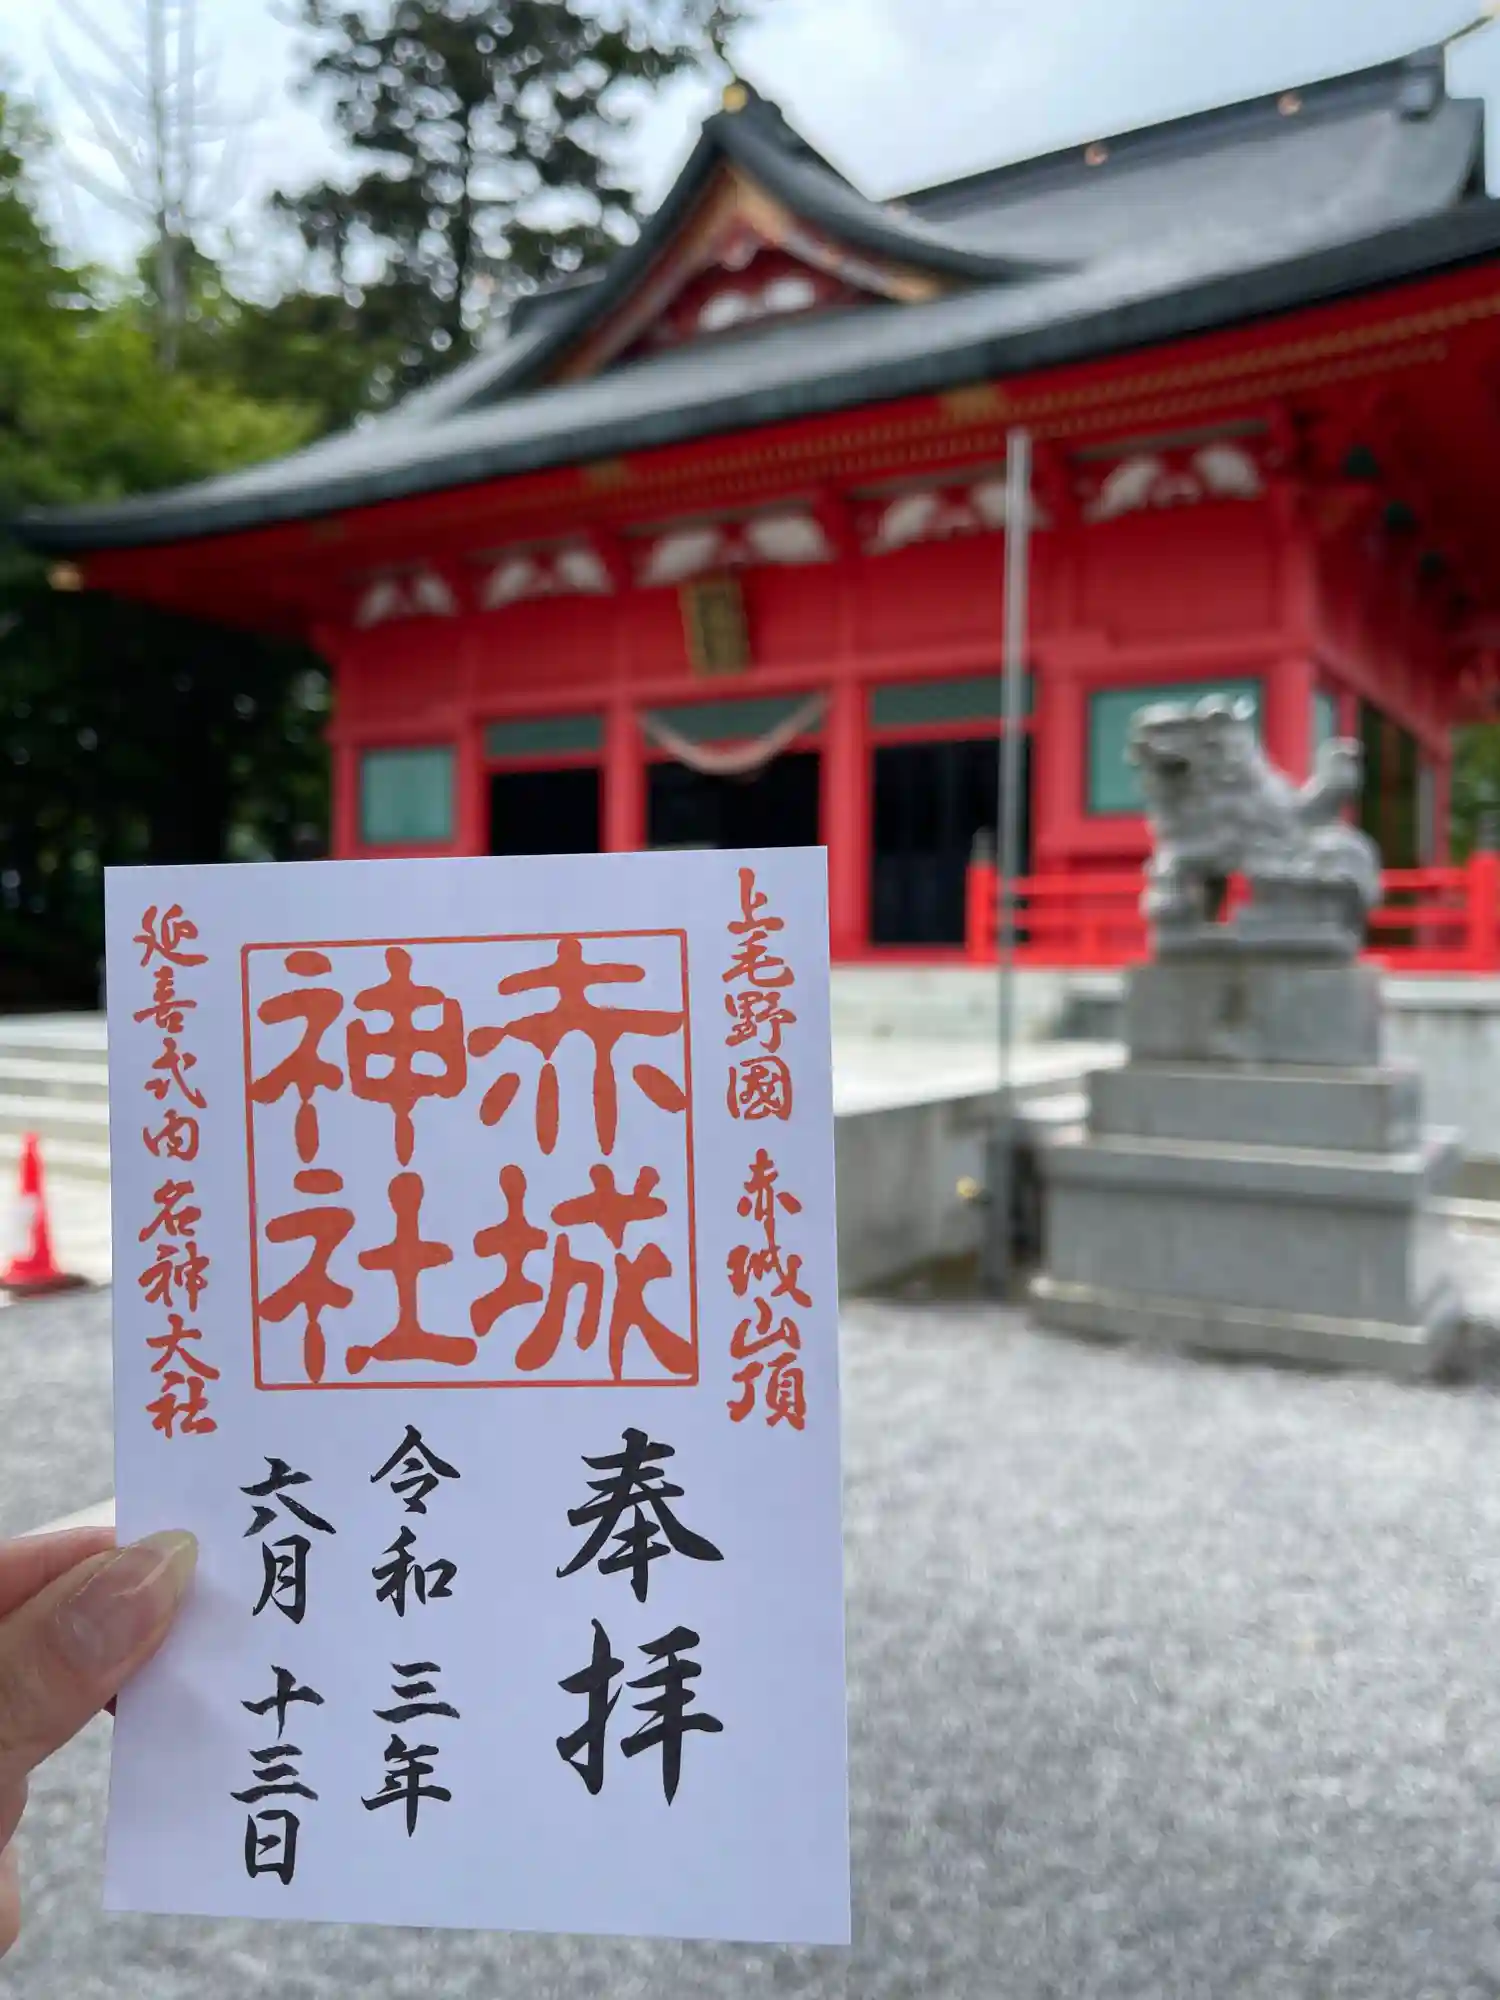 上毛野國 赤城山頂
赤城
神社
延喜式内 名神大社
奉拝
令和 三年
六月 十三日